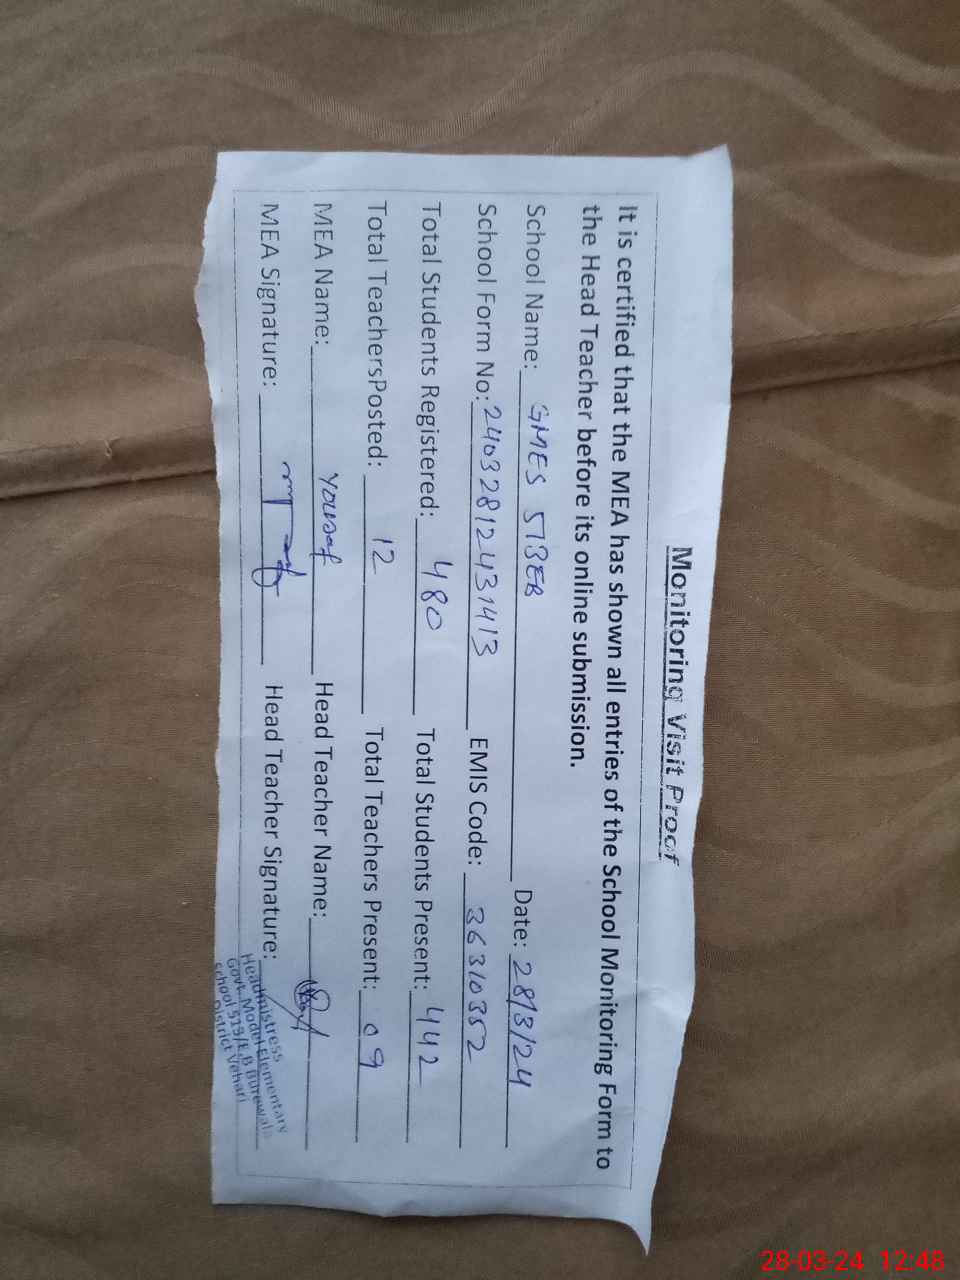 Monitoring Visit Proof
It is certified that the MEA has shown all entries of the School Monitoring Form to
the Head Teacher before its online submission.
School Name: GMES 513EB Date: 28/3/24
School Form No: 24032812431413 EMIS Code: 36310352
Total Students Registered: 480 Total Students Present: 442
Total TeachersPosted: 12 Total Teachers Present: 09
MEA Name: Yousaf Head Teacher Name:
MEA Signature: Head Teacher Signature:
Headmistress
Govt. Model Elementary
School 513/E.B Burewala
District Vehari
28-03-24 12:48